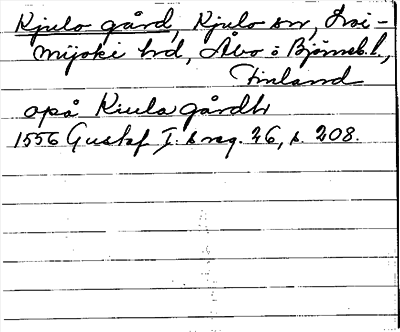 Kjulo gård, Kjulo sn, Loi-
mijoki hd, Åbo o Björneb. l,
Finland
opå Kiula gårdh
1556 Gustaf I:s reg. 26, s. 208.